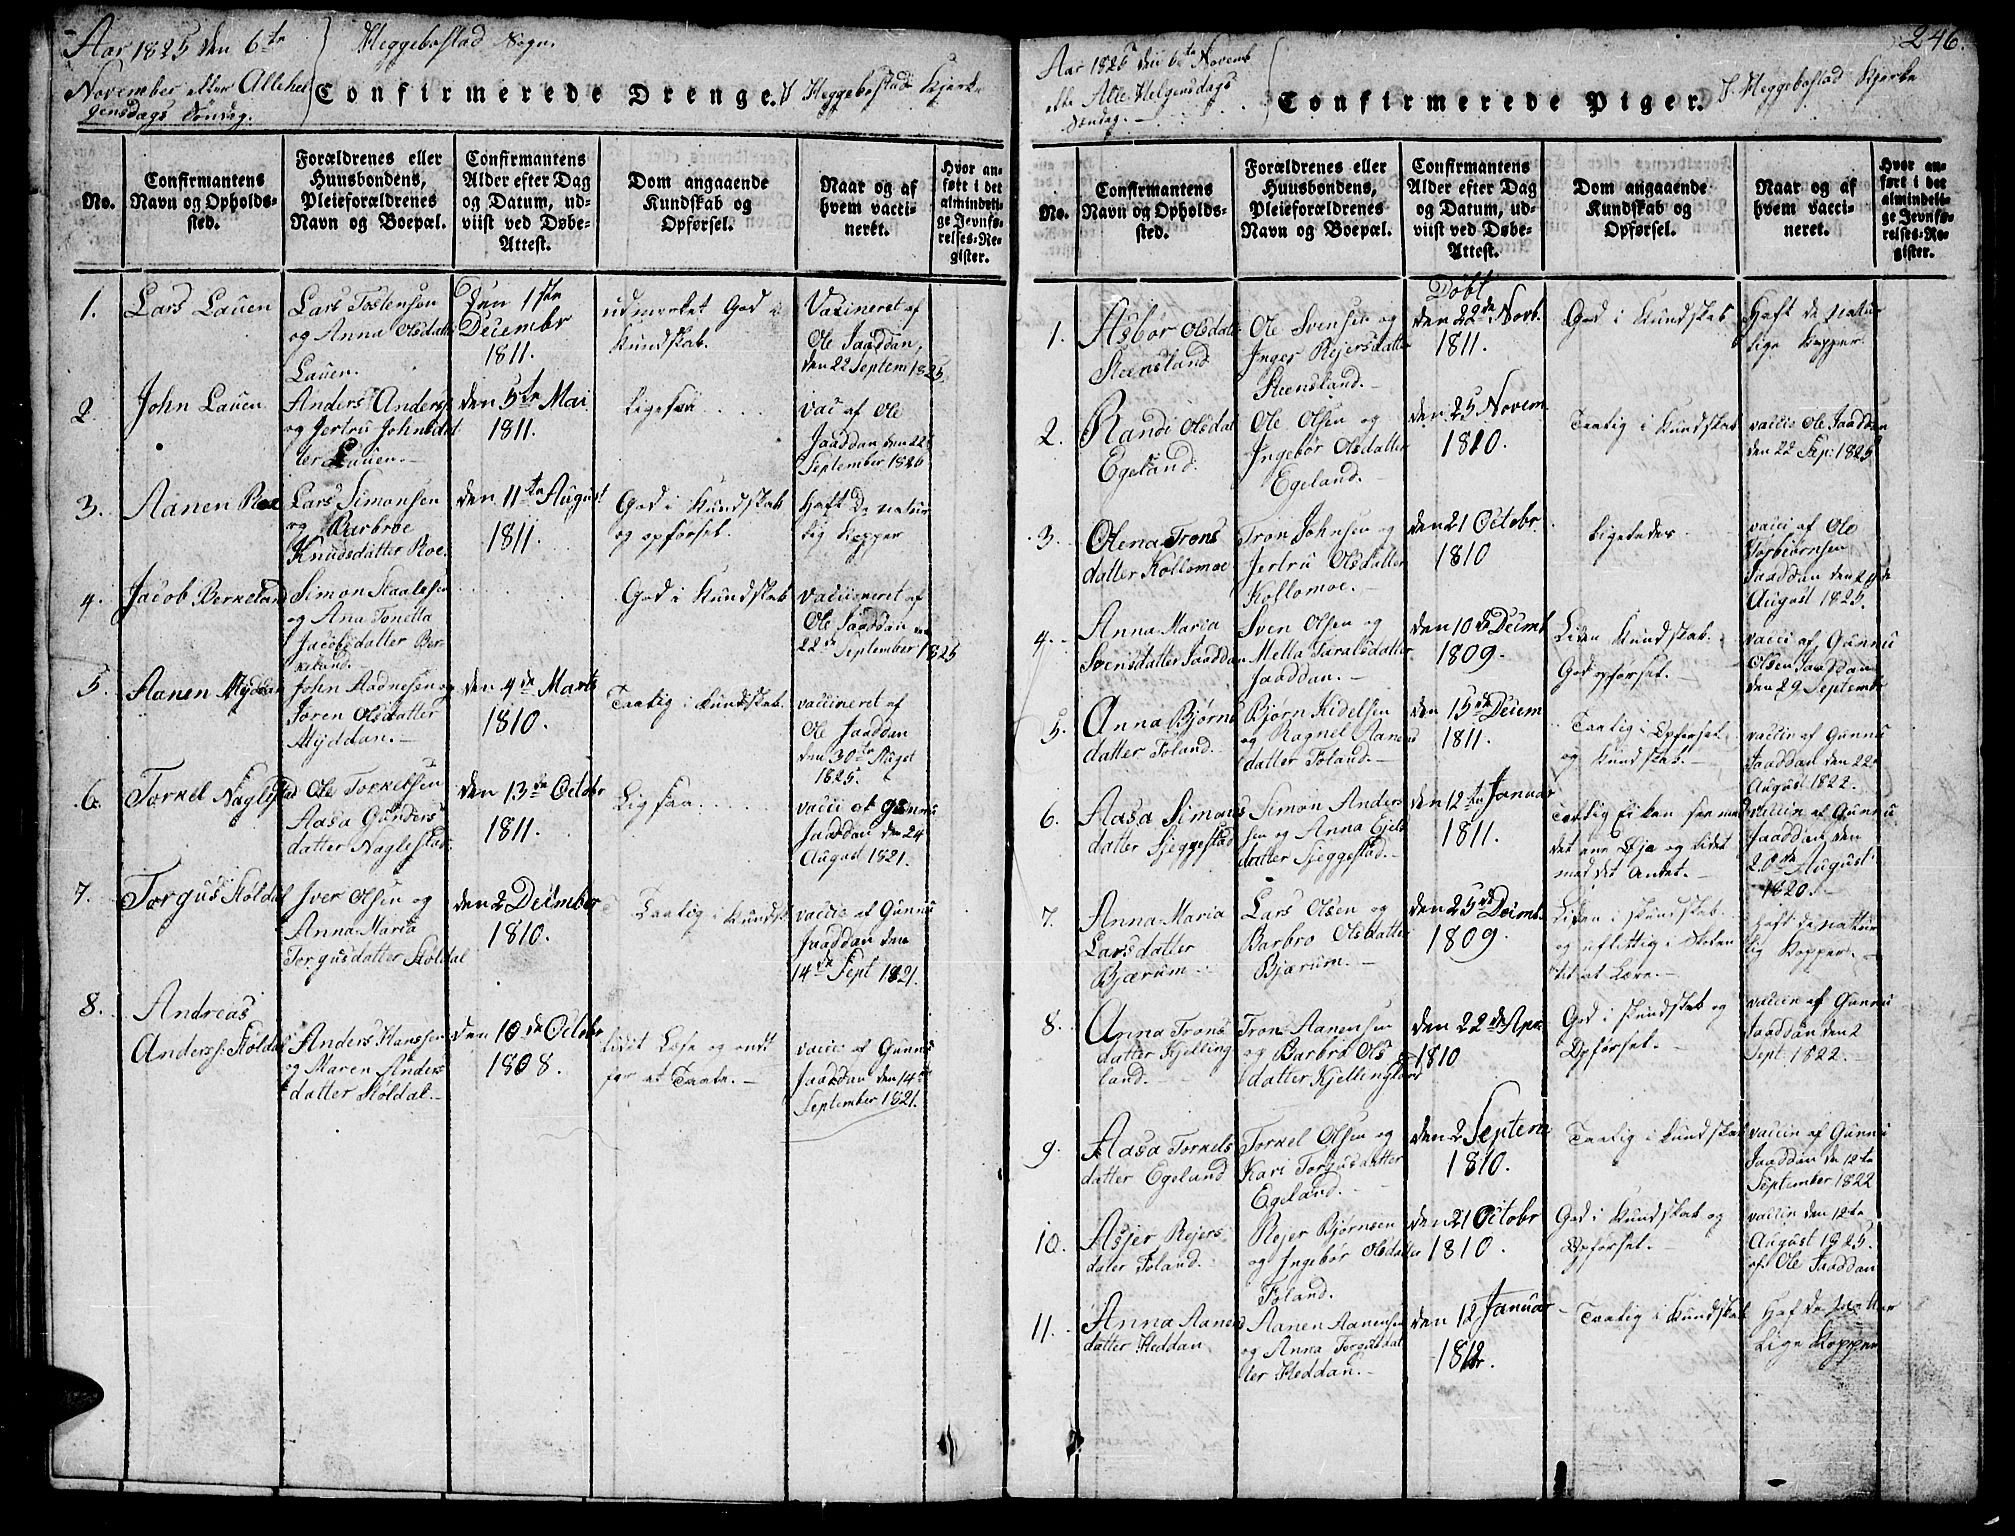 Aar 1825 den 6te
November eller Allehel
gensdags Søndag.
Heggebostad Sogn.
Confirmerede Drenge. I Heggebostad Kjerke
No.
Confirmantens Navn og Opholdssted.
Forældrenes eller Huusbondens, Pleieforældrenes Navn og Boepæl.
Confirmantens Alder efter Dag og Datum, udviist ved Døbe-Attest.
Dom angaaende Kundskab og Opførsel.
Naar og af hvem vaccineret.
Hvor anført i det almindelige Jevnførelses-Register.
1. Lars Lauen
Lars Tostensen
og Anna Olsdatter
Lauen.
Den 1ste
December
1811.
udmerket God i
Kundskab.
Vaxineret af
Ole Jaaddan,
den 22 Septem 1825.
2. John Lauen
Anders Anders
og Jertru Johnsdat
ter Lauen.
den 5te Mai
1811.
Ligesaa
vac af Ole
Jaaddan den 22
September 1826
3. Aanen Roe
Lars Simonsen
og Barbroe
Knudsdatter Roe.
den 11te August
1811.
God i Kundskab
og opførsel.
Haft De natur
lig Kopper
4. Jacob Berkeland
Simon Staalesen
og Ana Tonetta
Jacobsdatter Ber
keland.
God i Kundskab
Vaccineret af
Ole Jaaddan den
22de September 1825
5. Aanen Myddan
John Aadnesen og
Joren Olsdatter
Myddan.
den 4de Marts
1810.
Taalig i Kundskab.
vaccineret af
Ole Jaaddan
den 30te August
1825.
6. Torkel Naglestad
Ole Torkelsen
Aasa Gunders
datter Naglestad
den 13de Octobr
1811.
Ligesaa
vacci af Gunnu
Jaaddan den 24
August 1821.
7. Torgus Støldal
Iver Olsen og
Anna Maria
Torgusdatter Støldal
den 2 December
1810.
Taalig i Kundsk
vaccis af Gunnu
Jaaddan den
14de Sept 1821.
8. Andreas
Anders: Støldal
Anders Hanssen
og Maren Anders
datter Støldal.
den 10de Octobr
1808.
lidet Læse og ondt
for at Taale.
vacci af Gunnu
Jaaddan den 14de
September 1821.
246.
Aar 1825 den 6te Novemb
elle Alle Helgensdags
Søndag.
Confirmerede Piger. I Heggebostad Kjerke
No.
Confirmantens Navn og Opholdssted.
Forældrenes eller Huusbondens, Pleieforældrenes Navn og Boepæl.
Confirmantens Alder efter Dag og Datum, udviist ved Døbe-Attest.
Dom angaaende Kundskab og Opførsel.
Naar og af hvem vaccineret.
Hvor anført i det almindelige Jevnførelses-Register.
1. Asbør Olsdatt
Steensland
Ole Svensen og
Inger Rejersdatter
Steensland.
Døbt
den 22de Novb.
1811.
God i Kundskab
Haft de natur
lige Kopper
2. Randi Olsdat
Egeland.
Ole Olsen og
Ingebør Olsdatter
Egeland.
den 25 Novem.
1810.
Taalig i Kundskab
vaccis Ole Jaaddan
den 22 Sep: 1825
3. Olena Trons
datter Kollomoe
Tron Johnsen og
Jertru Olsdatter
Kollomoe.
den 21 Octobr
1810
Ligeledes
vacci af Ole
Torbjørnsen
Jaaddan den 29de
August 1825.
4. Anna Maria
Svensdatter Jaaddan
Sven Olsen og
Metta Taralsdatter
Jaaddan.
den 10de Decmb
1809.
Liden Kundskab.
God opførsel.
vacci af Gunnu
Olsen Jaaddan
den 29 Septembr
5. Anna Bjørns
datter Foland.
Bjørn Kidelsen
og Ragnel Aanens
datter Foland.
den 15de Decem
1811.
Taalig i Opførsel
og Kundskab.
vaccin af Gunnu
Jaaddan den 22
August 1822.
6. Aasa Simons
datter Sjeggestad
Simon Anders
sen og Anna Ejels
datter Sjeggestad.
den 12te Januar
1811.
Taalig Ei kan see med
det ene Øje og lidet
med det Andet.
vaccin af Gunnu
Jaaddan den
20de August
1820.
7. Anna Maria
Larsdatter
Bjærum
Lars Olsen og
Barbro Olsdatter
Bjærum.
den 25de Decmb.
1809.
Liden i Kundskab.
og efterlettig i Skolen
til at Lære.
Haft de nattur
lig Kopper.
8. Anna Trons
datter Kjelling
land.
Tron Aanensen
og Barbro Ols
datter Kjellingland
den 22de Apr.
1810
God i Kundskab og
Opførsel.
vaccin af Gunnu
Jaaddan den 2
Sept 1822.
9. Aasa Torkels
datter Egeland
Torkel Olsen og
Kari Torgusdatter
Egeland.
den 2 Septem
1810.
Taalig i Kundskab
vaccin af Gunnu
Jaaddan den 12te
September 1822
10. Asjer Rejers
dater Foland.
Rejer Bjørnsen
og Ingebør Olsdatter
Foland.
den 21 Octobr
1810.
God i Kundskab og
Opførsel.
vaccin den 12te
August 1825.
af Ole Jaaddan
11. Anna Aanens
datter Heddan
Aanen Aanensen
og Anna Torgusdat
ter Heddan.
den 12 Januar
1812.
Taalig i Kundskab
Haf de nattur
Lige Kopper